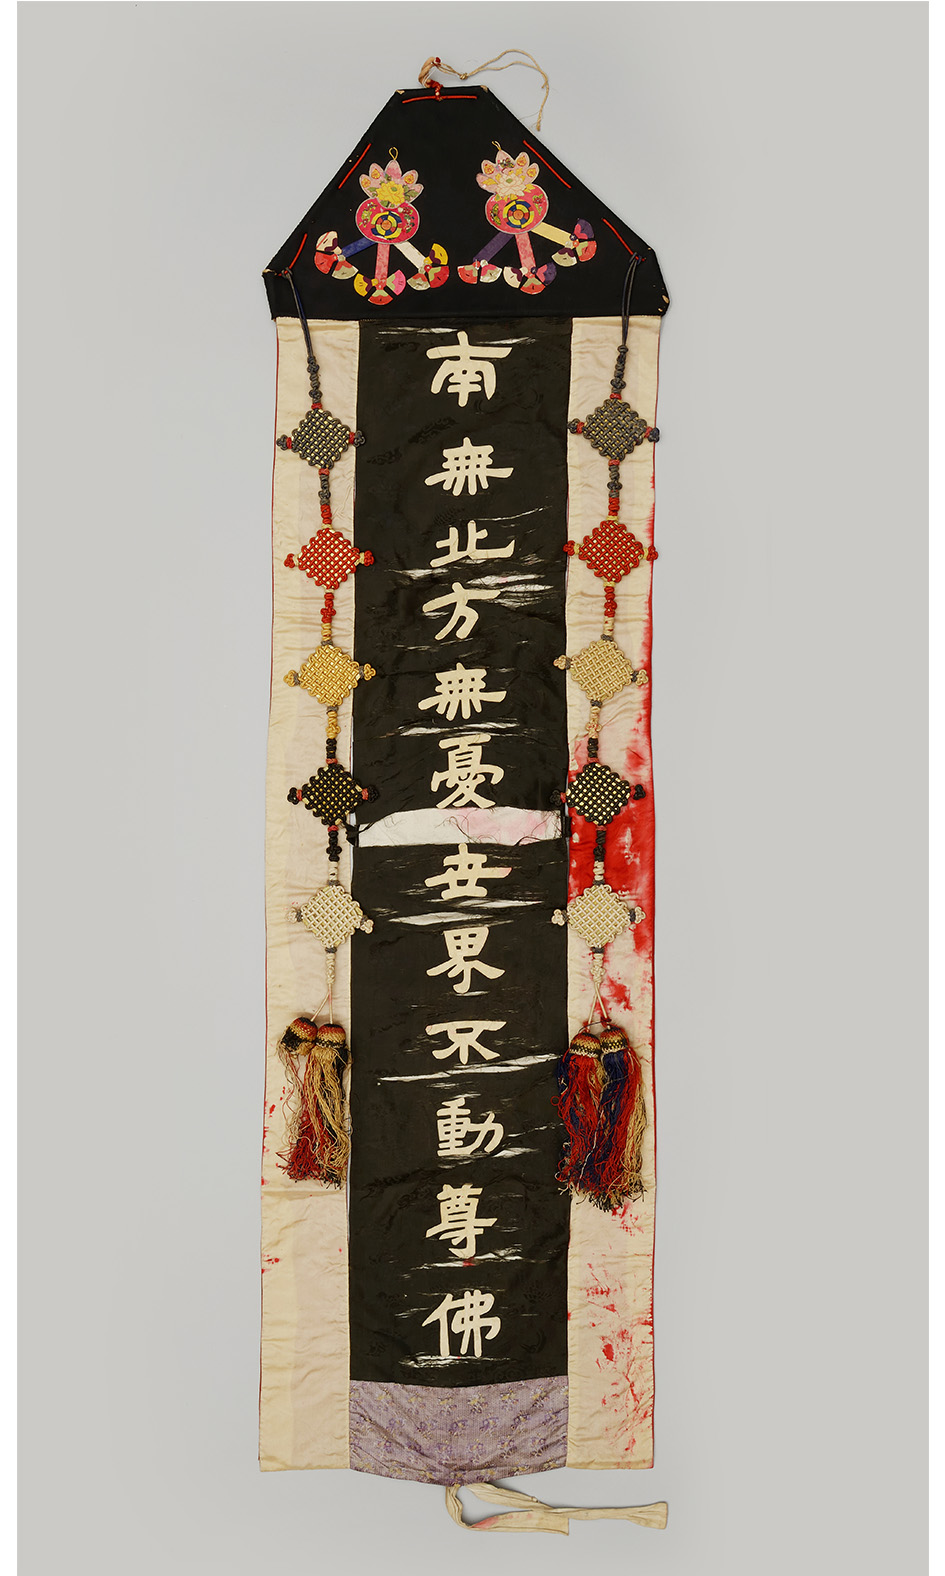 南無北方無憂世界不動尊佛